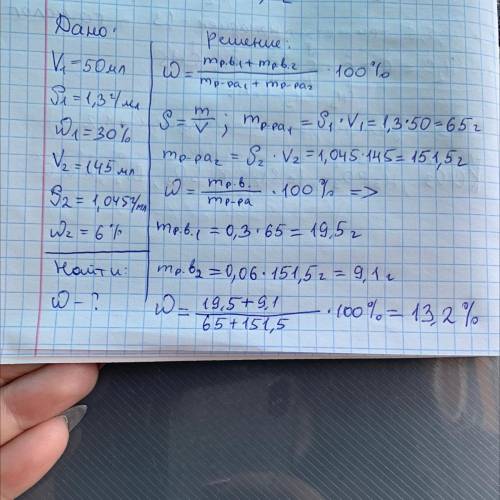 Дано:
V₁=50мл
S₁=1,3г/мл
ω₁=30%
V₂=145мл
S₂=1,045г/мл
ω₂=6%
Найти:
ω-?
Решение:
ω = (mр.в₁+mр.в.₂)/(mр-ра₁+mр-ра₂) · 100%
S = m/V; mр-ра₁ = S₁·V₁ = 1,3·50 = 65г
mр-ра₂ = S₂·V₂ = 1,045·145 = 151,5г
ω = mр.в./mр-ра · 100% =>
mр.в.₁ = 0,3·65 = 19,5г
mр.в₂ = 0,06·151,5г = 9,1г
ω = (19,5+9,1)/(65+151,5) · 100% = 13,2%